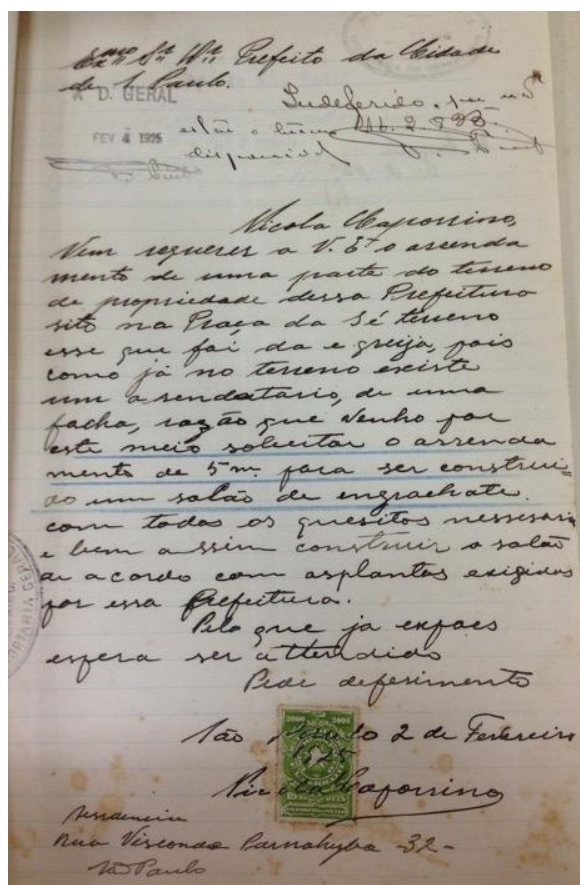 Exmo Sr. Dr. Prefeito da Cidade
de S. Paulo.
A D. GERAL
FEV 4 1925
Indeferido. por não
estar o
disponivel
Nicola Caporrino,
Vem requerer a V. Exª o arrenda
mento de uma parte do terreno
de propriedade dessa Prefeitura
sito na Praça da Sé terreno
esse que foi da egreija, pois
como já no terreno existe
um arrendatario, de uma
facha, razão que venho por
este meio solicitar o arrenda
mento de 5 m. para ser construi=
do um salão de engrachate.
com todos os quesitos nessesario
e bem assim construir o salão
de acordo com as plantas exigidas
por essa Prefeitura.
Pelo que ja expoes
espera ser attendido
Pede deferimento
São Paulo 2 de Fevereiro
1925
2000 2000
Nicola Caporrino
Residencia
Rua Visconde Parnahyba -32-
São Paulo